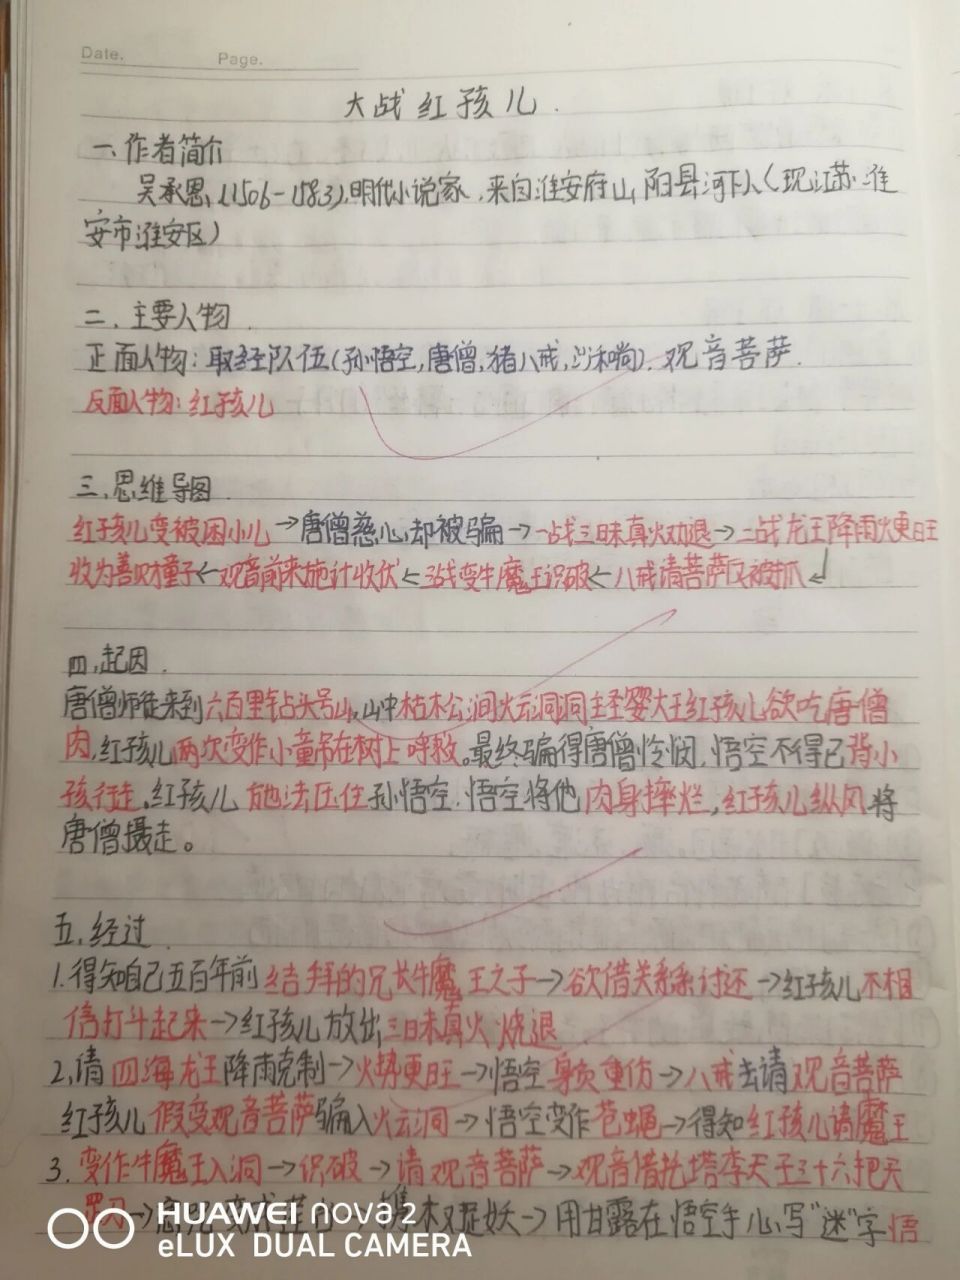 Date.          Page.
大战红孩儿.
一.作者简介
吴承恩,(1506-1583),明代小说家,来自淮安府山阳县河下人(现江苏淮
安市淮安区)
二.主要人物.
正面人物:取经队伍(孙悟空,唐僧,猪八戒,沙和尚).观音菩萨.
反面人物:红孩儿
三.思维导图.
红孩儿变被困小儿→唐僧慈心,却被骗→一战三昧真火劝退→二战龙王降雨火更旺
收为善财童子←观音前来施计收伏←三战变牛魔王识破←八戒请菩萨反被抓
四.起因.
唐僧师徒来到六百里钻头号山,山中枯松涧火云洞洞主圣婴大王红孩儿欲吃唐僧
肉,红孩儿两次变作小童吊在树上呼救。最终骗得唐僧怜悯,悟空不得已背小
孩行走,红孩儿施法压住孙悟空.悟空将他肉身摔烂,红孩儿纵风将
唐僧摄走。
五.经过.
1.得知自己五百年前结拜的兄长牛魔王之子→欲借关系讨还→红孩儿不相
信打斗起来→红孩儿放出三昧真火烧退
2,请四海龙王降雨克制→火势更旺→悟空身负重伤→八戒去请观音菩萨
红孩儿假变观音菩萨骗入火云洞→悟空变作苍蝇→得知红孩儿请魔王
3.变作牛魔王入洞→识破→请观音菩萨→观音借托塔李天王三十六把天
罡刀→捉妖→用甘露在悟空手心写"迷"字悟
HUAWEI nova 2
eLUX DUAL CAMERA